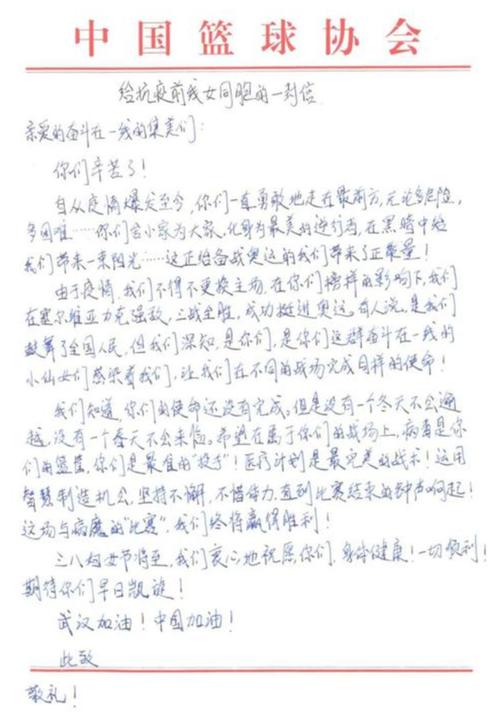 中国篮球协会
给抗疫前线女同胞的一封信
亲爱的奋斗在一线的集美们:
你们辛苦了!
自从疫情爆发至今,你们一直勇敢地走在最前方,无论多危险,
多困难……你们舍小家为大家,化身为最美的逆行者,在黑暗中给
我们带来一束阳光……这正给备战奥运的我们带来了正能量!
由于疫情,我们不得不更换主场,在你们榜样的影响下,我们
在塞尔维亚力克强敌,三战全胜,成功挺进奥运。有人说,是我们
鼓舞了全国人民,但我们深知,是你们,是你们这群奋斗在一线的
小仙女们感染着我们,让我们在不同的战场完成同样的使命!
我们知道,你们的使命还没有完成。但是没有一个冬天不会逾
越,没有一个春天不会来临。希望在属于你们的战场上,病毒是你
们的篮筐,你们是最佳的“投手”!医疗计划是最完美的战术!运用
智慧制造机会,坚持不懈,不惜体力,直到比赛结束的钟声响起!
这场与病魔的“比赛”,我们终将赢得胜利!
三八妇女节将至,我们衷心地祝愿你们,身体健康!一切顺利!
期待你们早日凯旋!
武汉加油!中国加油!
此致
敬礼!